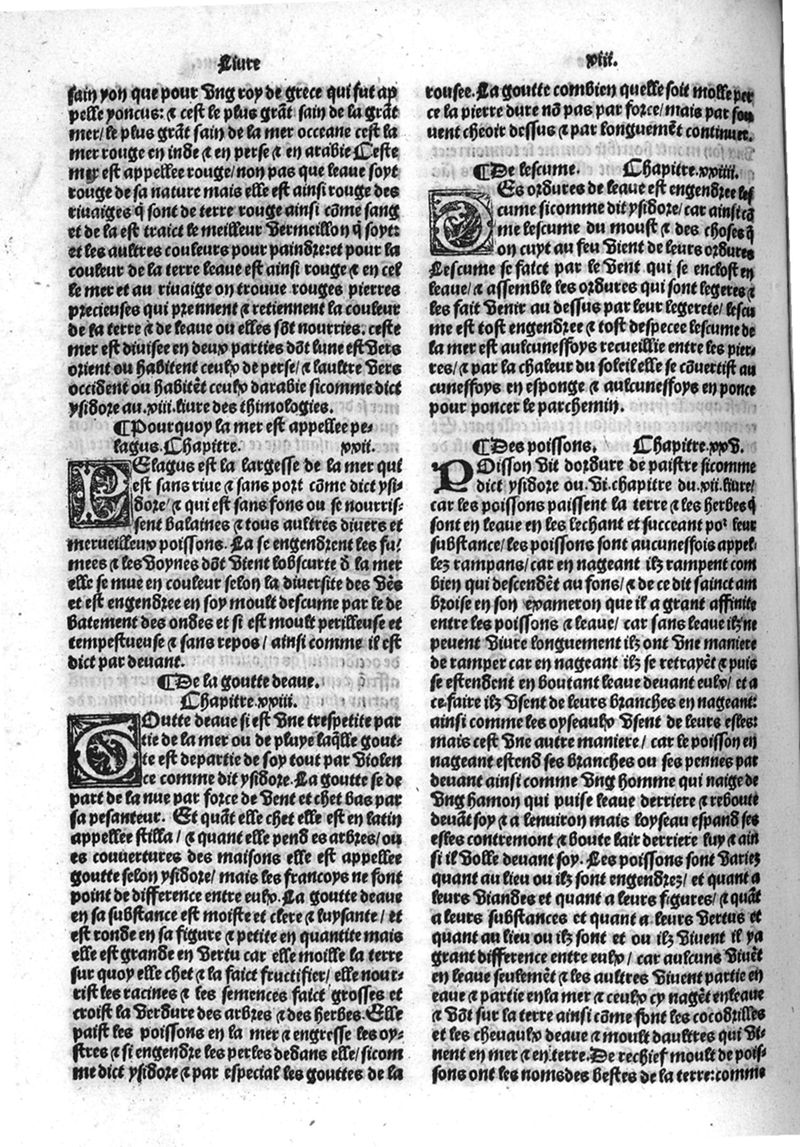 Liure
xiii.
sain yon que pour vng roy de grece qui fut ap
pelle yoncus: ⁊ cest le plus grãt sain de la grãt
mer/ le plus grãt sain de la mer occeane cest la
mer rouge en inde ⁊ en perse ⁊ en arabie Ceste
mer est appellee rouge/ non pas que leaue soyt
rouge de sa nature mais elle est ainsi rouge des
riuaiges q̃ sont de terre rouge ainsi cõme sang
et de la est traict le meilleur vermeillon q̃ soyt:
et les aultres couleurs pour paindre: et pour la
couleur de la terre leaue est ainsi rouge ⁊ en cel
le mer et au riuaige on trouue rouges pierres
precieuses qui prennent ⁊ retiennent la couleur
de la terre ⁊ de leaue ou elles sõt nourries. ceste
mer est diuisee en deux parties dõt lune est vers
orient ou habitent ceulx de perse/ ⁊ laultre vers
occident ou habitẽt ceulx darabie sicomme dict
ysidore au .xiii. liure des thimologies.
¶Pourquoy la mer est appellee pe-
lagus. Chapitre. xxii.
PElagus est la largesse de la mer qui
est sans riue ⁊ sans port cõme dict ysi-
dore/ ⁊ qui est sans fons ou se nourris-
sent balaines ⁊ tous aultres diuers et
merueilleux poissons. La se engendrent les fu-
mees ⁊ les voynes dõt vient lobscurte d̃ la mer
elle se mue en couleur selon la diuersite des vẽs
et est engendree en soy moult descume par le de
batement des ondes et si est moult perilleuse et
tempestueuse ⁊ sans repos/ ainsi comme il est
dict par deuant.
¶De la goutte deaue.
Chapitre.xxiii.
GOutte deaue si est vne trespetite par
tie de la mer ou de pluye laq̃lle gout-
te est departie de soy tout par violen
ce comme dit ysidore. La goutte se de
part de la nue par force de vent et chet bas par
sa pesanteur. Et quãt elle chet elle est en latin
appellee stilla/ ⁊ quant elle pend es arbres/ ou
es couuertures des maisons elle est appellee
goutte selon ysidore/ mais les francoys ne font
point de difference entre eulx. La goutte deaue
en sa substance est moiste et clere ⁊ luysante/ et
est ronde en sa figure ⁊ petite en quantite mais
elle est grande en vertu car elle moille la terre
sur quoy elle chet ⁊ la faict fructifier/ elle nour-
rist les racines ⁊ les semences faict grosses et
croist la verdure des arbres ⁊ des herbes. Elle
paist les poissons en la mer ⁊ engresse les oy-
stres ⁊ si engendre les perles dedans elle/ sicom
me dict ysidore ⁊ par especial les gouttes de la
rousee. La goutte combien quelle soit molle per
ce la pierre dure nõ pas par force/ mais par sou
uent cheoir dessus ⁊ par longuemẽt continuer.
¶De lescume. Chapitre.xxiiii.
DEs ordures de leaue est engendree les
cume sicomme dit ysidore/ car ainsi cõ
me lescume du moust ⁊ des choses q̃
on cuyt au feu vient de leurs ordures
Lescume se faict par le vent qui se enclost en
leaue/ ⁊ assemble les ordures qui sont legeres ⁊
les fait venir au dessus par leur legerete/ lescu
me est tost engendree ⁊ tost despecee lescume de
la mer est aulcuneffoys recueillie entre les pier-
res/ ⁊ par la chaleur du soleil elle se cõuertist au
cuneffoys en esponge ⁊ aulcuneffoys en ponce
pour poncer le parchemin.
¶Des poissons. Chapitre.xxv.
POisson vit dordure de paistre sicomme
dict ysidore ou .vi. chapitre du .xii. liure/
car les poissons paissent la terre ⁊ les herbes q̃
sont en leaue en les lechant et succeant po² leur
substance/ les poissons sont aucuneffois appel-
lez rampans/ car en nageant ilz rampent com
bien qui descendẽt au fons/ ⁊ de ce dit sainct am
broise en son exameron que il a grant affinite
entre les poissons ⁊ leaue/ car sans leaue ilz ne
peuent viure longuement ilz ont vne maniere
de ramper car en nageant ilz se retrayẽt ⁊ puis
se estendent en boutant leaue deuant eulx/ et a
ce faire ilz vsent de leurs branches en nageant:
ainsi comme les oyseaulx vsent de leurs esles:
mais cest vne autre maniere/ car le poisson en
nageant estend ses branches ou ses pennes par
deuant ainsi comme vng homme qui naige de
vng hamon qui puise leaue derriere ⁊ reboute
deuãt soy ⁊ a lenuiron mais loyseau espand ses
esles contremont ⁊ boute lair derriere luy ⁊ ain
si il volle deuant soy. Les poissons sont variez
quant au lieu ou ilz sont engendrez/ et quant a
leurs viandes et quant a leurs figures/ ⁊ quãt
a leurs substances et quant a leurs vertus et
quant au lieu ou ilz sont et ou ilz viuent il ya
grant difference entre eulx/ car aulcuns viuẽt
en leaue seulemẽt ⁊ les aultres viuent partie en
eaue ⁊ partie en la mer ⁊ ceulx cy nagẽt en leaue
⁊ võt sur la terre ainsi cõme font les cocodrilles
et les cheuaulx deaue ⁊ moult daultres qui vi-
uent en mer ⁊ en terre. De rechief moult de pois-
sons ont les noms des bestes de la terre: comme